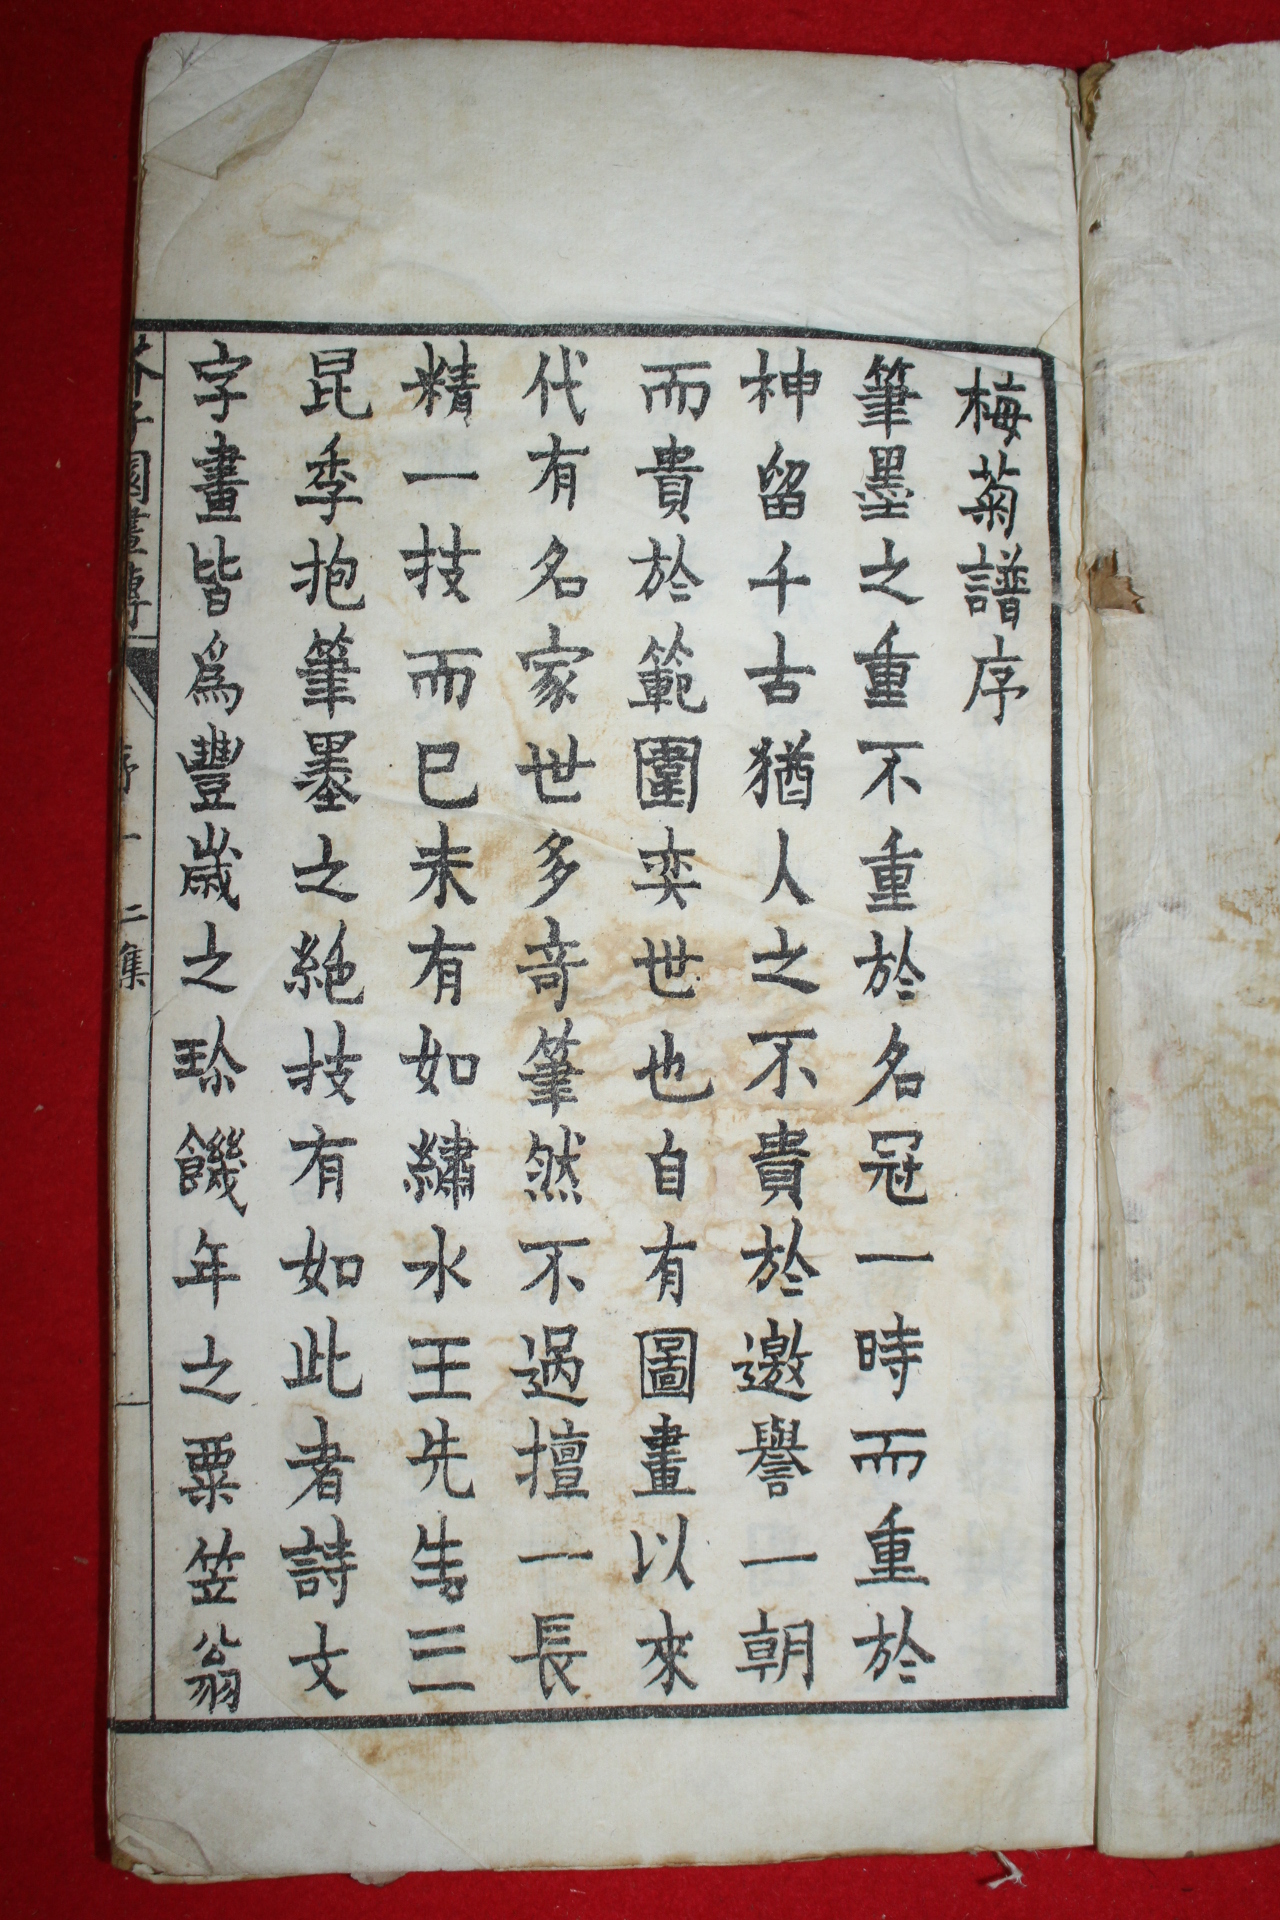 梅菊譜序
筆墨之重不重於名冠一時而重於
神留千古猶人之不貴於邀譽一朝
而貴於範圍奕世也自有圖畫以來
代有名家世多竒筆然不過擅一長
精一技而已未有如繡水王先生三
昆季抱筆墨之絶技有如此者詩文
字畫皆爲豐歲之珍饑年之粟笠翁
芥子園畫傳
序
一
二集